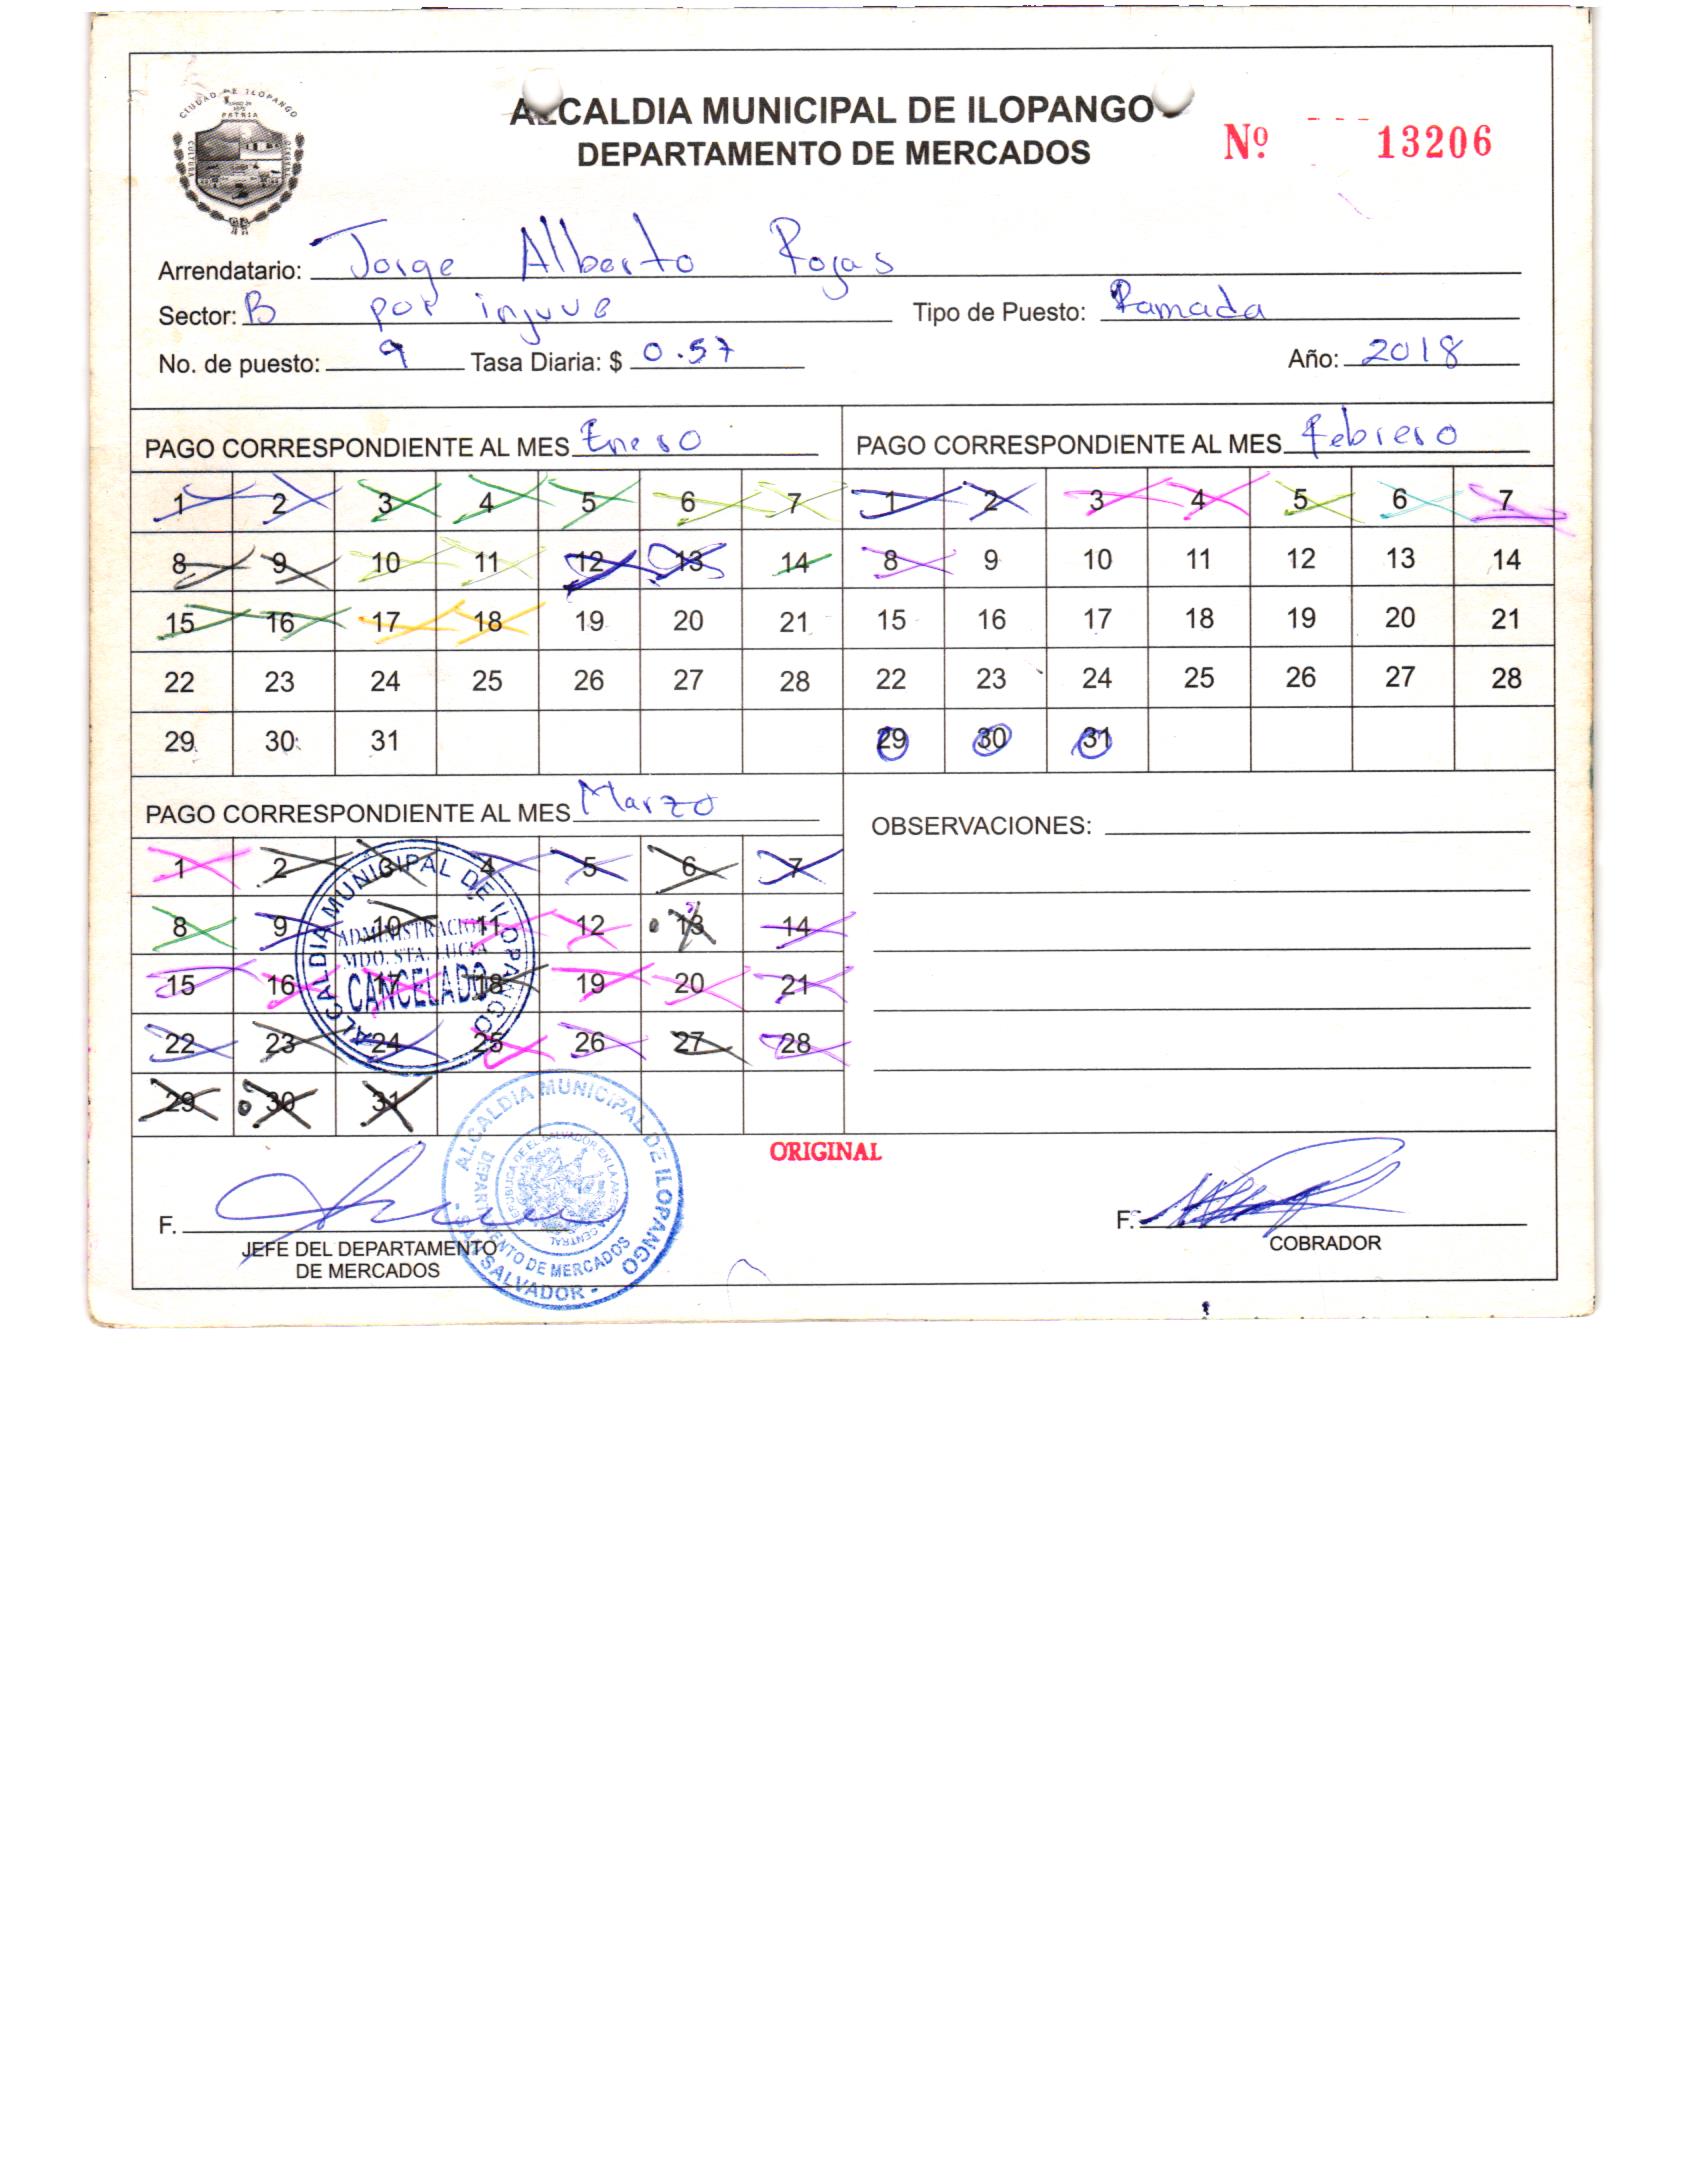 CIUDAD DE ILOPANGO
PATRIA
CULTURA
ALCALDIA MUNICIPAL DE ILOPANGO
DEPARTAMENTO DE MERCADOS
Nº 13206
Arrendatario: Jorge Alberto Rojas
Sector: B por injuve Tipo de Puesto: Ramada
No. de puesto: 9 Tasa Diaria: $ 0.57 Año: 2018
PAGO CORRESPONDIENTE AL MES Enero
1 2 3 4 5 6 7
8 9 10 11 12 13 14
15 16 17 18 19 20 21
22 23 24 25 26 27 28
29 30 31
PAGO CORRESPONDIENTE AL MES Febrero
1 2 3 4 5 6 7
8 9 10 11 12 13 14
15 16 17 18 19 20 21
22 23 24 25 26 27 28
29 30 31
PAGO CORRESPONDIENTE AL MES Marzo
1 2 3 4 5 6 7
8 9 10 11 12 13 14
15 16 17 18 19 20 21
22 23 24 25 26 27 28
29 30 31
ALCALDIA MUNICIPAL DE ILOPANGO
ADMINISTRACION
MDO. STA. LUCIA
CANCELADO
OBSERVACIONES:
ORIGINAL
ALCALDIA MUNICIPAL DE ILOPANGO
DEPARTAMENTO DE MERCADOS
REPUBLICA DE EL SALVADOR EN LA AMERICA CENTRAL
- SAN SALVADOR -
F.
JEFE DEL DEPARTAMENTO
DE MERCADOS
F.
COBRADOR